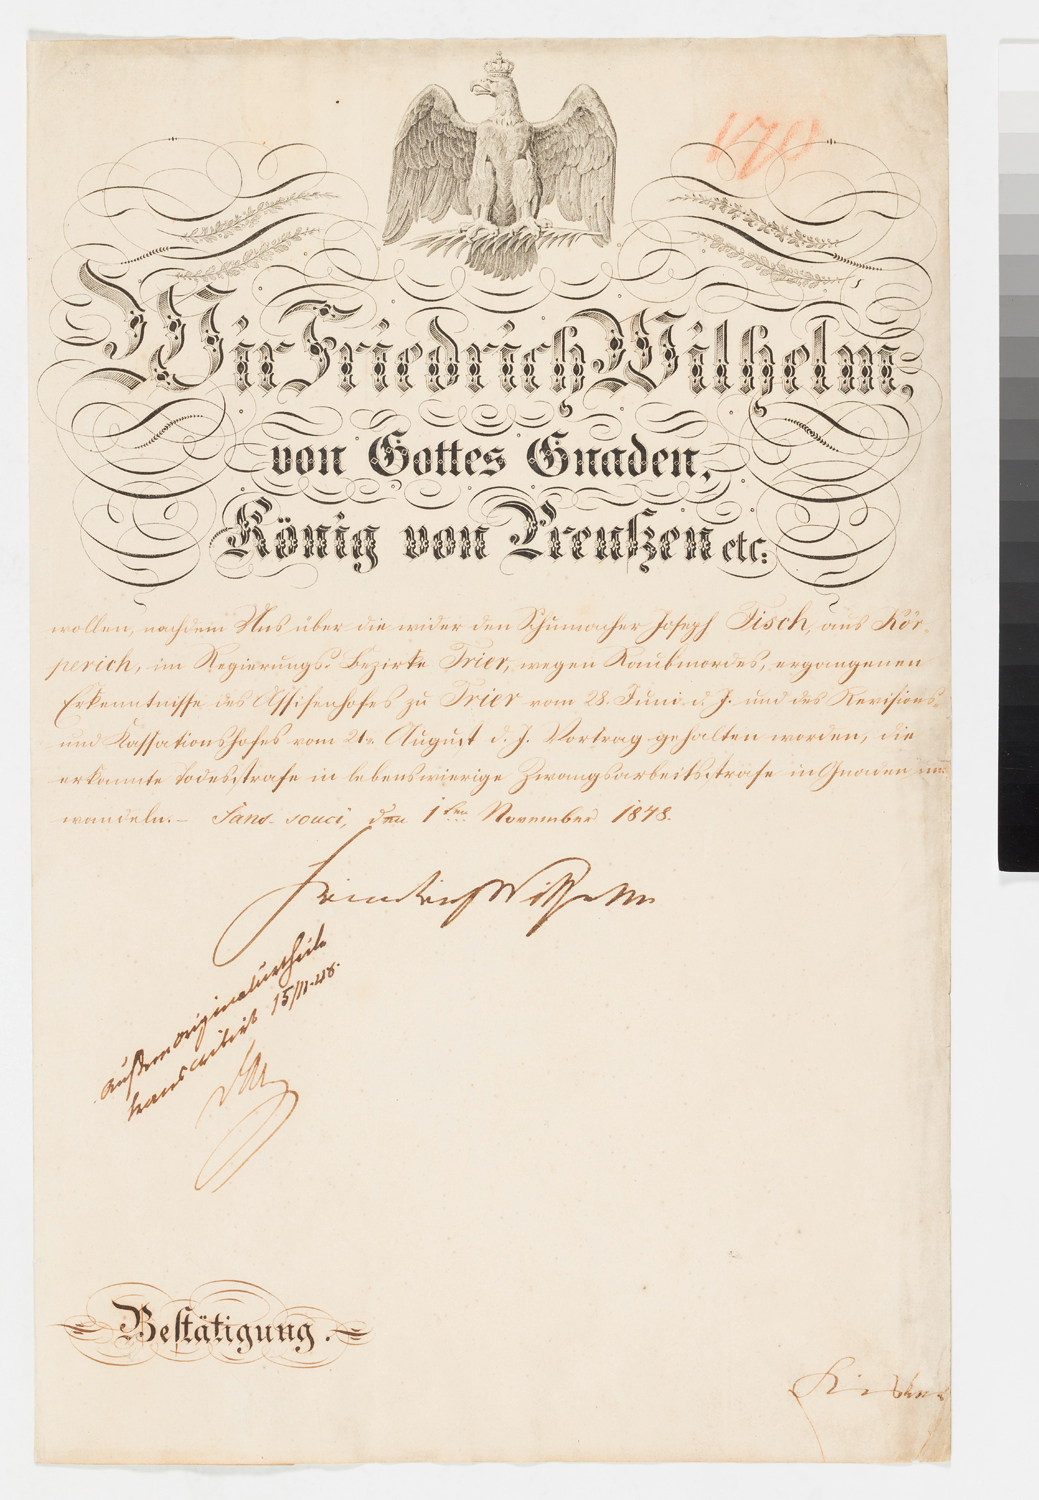 170
Wir Friedrich Wilhelm,
von Gottes Gnaden,
König von Preußen etc:
wollen, nachdem Uns über die wider den Schumacher Joseph Fisch, aus Kör-
perich, im Regierungs-Bezirke Trier, wegen Raubmordes, ergangenen
Erkenntnisse des Assisenhofes zu Trier vom 28. Juni d. J. und des Revisions-
und Kassationshofes vom 21n August d. J. Vortrag gehalten worden, die
erkannte Todesstrafe in lebenswierige Zwangsarbeitsstrafe in Gnaden um-
wandeln. – Sans-souci, den 1ten November 1848.
Friedrich Wilhelm
originalurtheil
15/11.48.
Bestätigung.